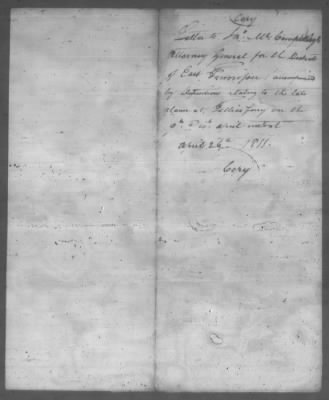 Copy
Letter to Jno. McCampbell
Attorney General for the District
of East Tennessee; accompanied
by depositions relating to the late
affair at Tellico Ferry on the
9th &
April instant
April 26th 1811.
Copy